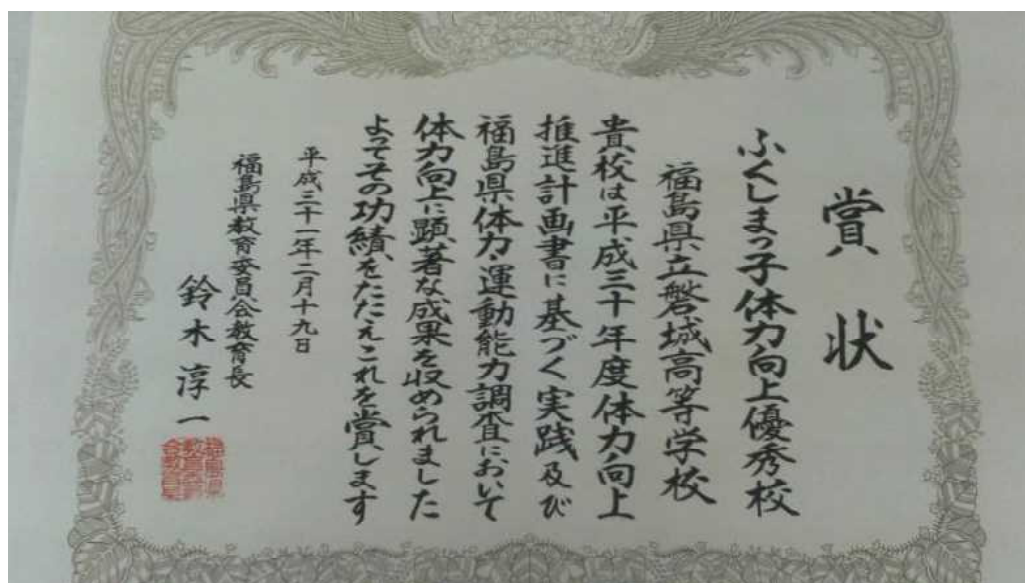 賞状
ふくしまっ子体力向上優秀校
福島県立磐城高等学校
貴校は平成三十年度体力向上
推進計画書に基づく実践及び
福島県体力・運動能力調査において
体力向上に顕著な成果を収められました
よってその功績をたたえこれを賞します
平成三十一年二月十九日
福島県教育委員会教育長
鈴木淳一